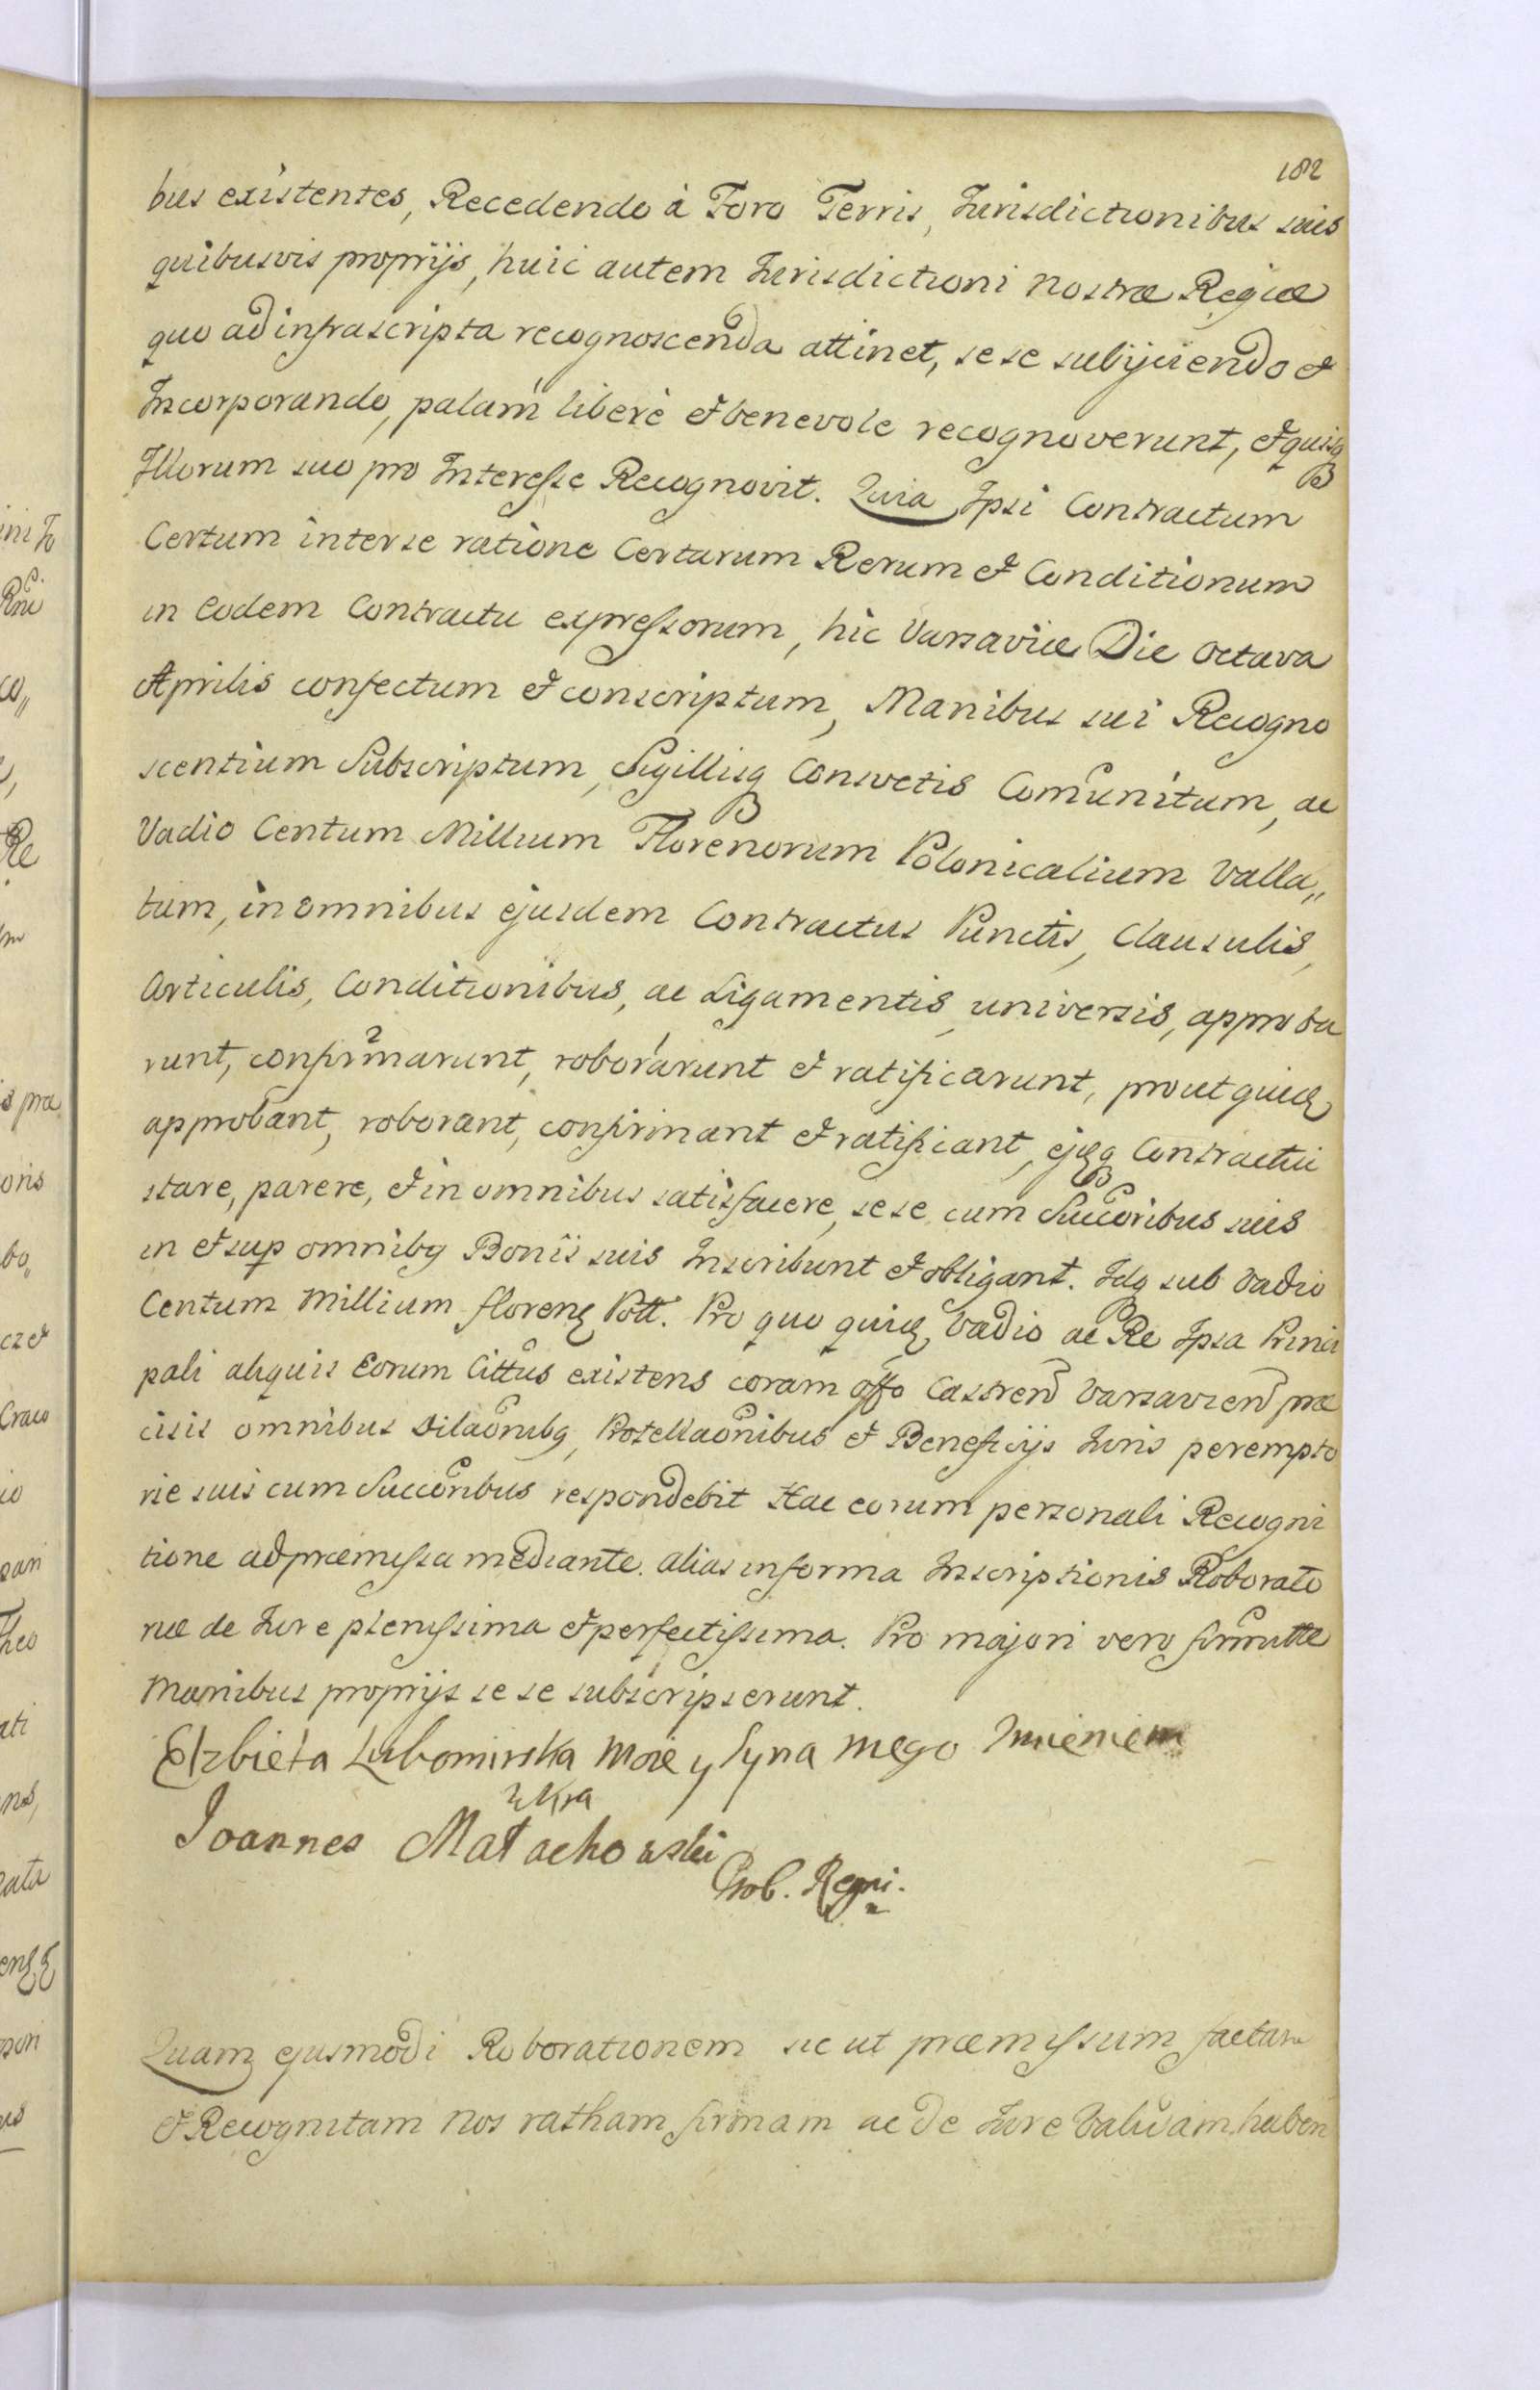 182
bus existentes, Recedendo à Foro Terris, Jurisdictionibus suis
quibusvis proprijs, huic autem Jurisdictioni nostræ Regiæ
quo ad infrascripta recognoscenda attinet, sese subijciendo et
Incorporando, palam liberè et benevole recognoverunt, et quisq
Illorum suo pro Interesse Recognovit. Quia Ipsi Contractum
Certum inter se ratione Certarum Rerum et Conditionum
in Eodem Contractu expressorum, hic Varsaviæ Die octava
Aprilis confectum et conscriptum, Manibus sui Recogno
scentium Subscriptum, Sigillisq Consvetis Comunitum, ac
Vadio Centum Millium Florenorum Polonicalium Valla„
tum, in omnibus ejusdem Contractus Punctis, Clausulis,
Articulis, Conditionibus, ac Ligamentis universis, approba
runt, confirmarunt, roborarunt et ratificarunt, prout quidem
approbant, roborant, confirmant et ratificant, ejdq Contractui
stare, parere, et in omnibus satisfacere, sese cum Succoribus suis
in et sup omnibq Bonis suis Inscribunt et obligant. Idq sub Vadio
Centum Millium floren Poll. Pro quo quid Vadio ac Re Ipsa Princi
pali aliquis Eorum Cittus existens coram Offo Castren Varsavien præ
cisis omnibus Dilaonibq, Protellaonibus et Beneficijs Juris perempto
rie suis cum Succoribus respondebit Hac eorum personali Recogni
tione ad præmissa mediante. alias in forma Inscriptionis Roborato
riæ de Jure plenissima et perfectissima. Pro majori vero firmitte
Manibus proprijs sese subscripserunt.
Elzbieta Lubomirska Moie y Syna mego Imieniem
Joannes Małachowski
Regni.
Quam ejusmodi Roborationem sic ut præmissum factam
et Recognitam Nos ratham firmam ac de Jure Validam haben